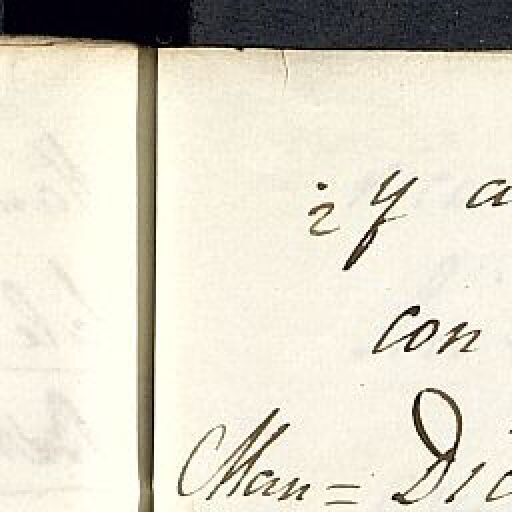 ¿y a
con
Man= Dic